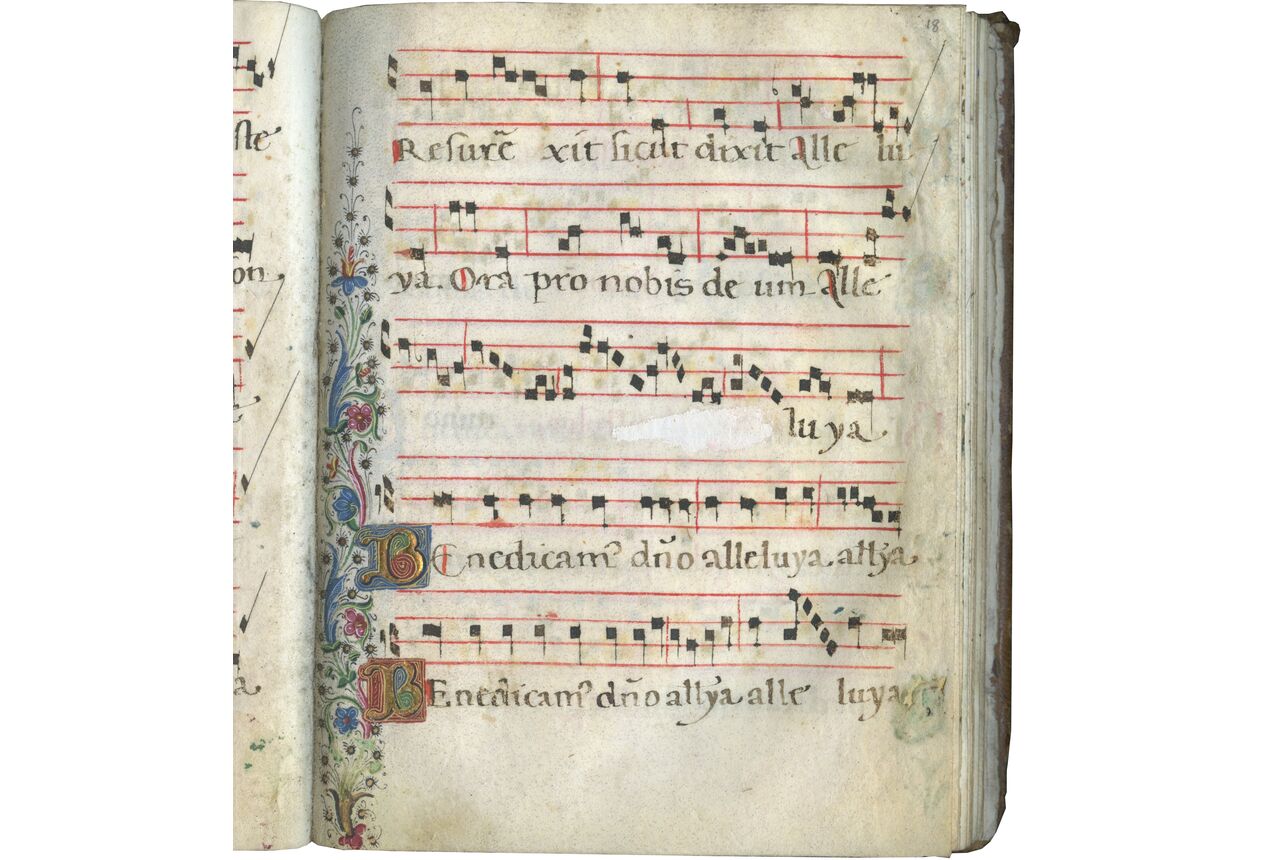 18
ste
Resurr̃e xit sicut dixit Alle lu
ya. Ora pro nobis de um Alle
on
lu ya
BEnedicam⁹ dn̄o alleluya. all'ya
BEnedicam⁹ dn̄o all'ya alle luya
a